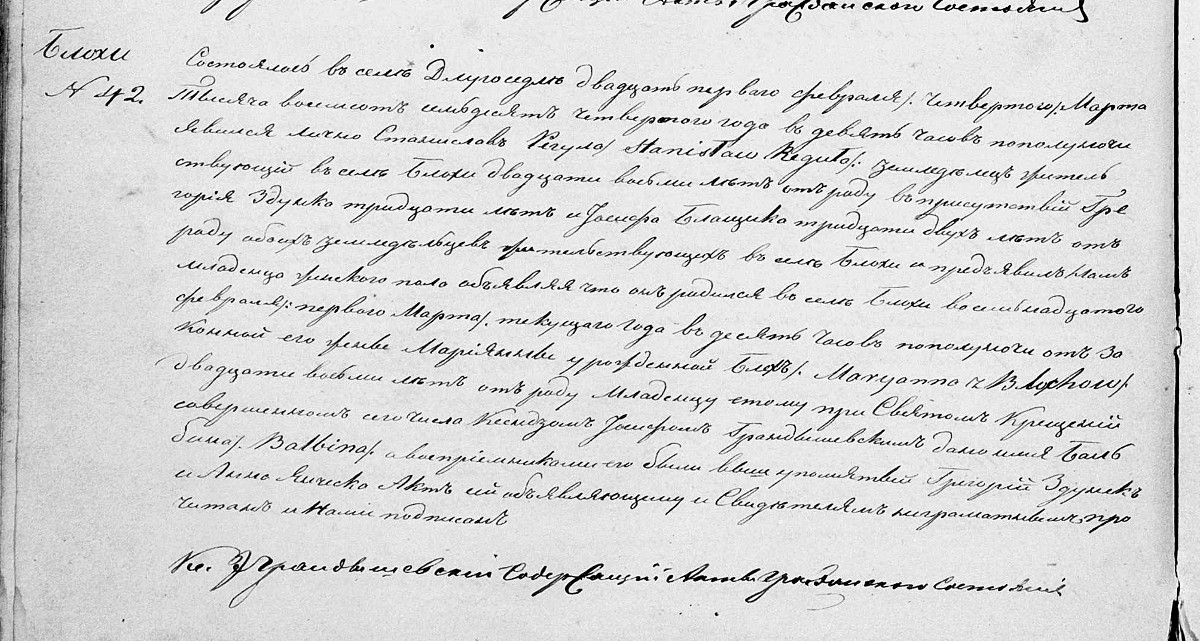 Актъ Гражданскаго Состоянія
Блохи
N 42.
Состоялось въ селѣ Длугоседлѣ двадцать перваго февраля /: Четвертого /: Марта
Тысяча восемсотъ семьдесятъ четвертого года въ девять часовъ пополуночи
явился лично Станиславъ Регула / Stanisław Reguła /: земледѣлецъ житель
ствующій въ селѣ Блохи двадцати восьми лѣтъ отъ роду въ присутствій Гре
горія Здунка тридцати лѣтъ и Іосифа Блащика тридцати двухъ лѣтъ отъ
роду обоихъ земледѣльцевъ жительствующихъ въ селѣ Блохи и предъявилъ Намъ
младенца женского пола объявляя что онъ родился въ селѣ Блохи восемьнадцатого
февраля /: первого Марта /. текущаго года въ десять часовъ пополуночи отъ За
конной его женве Маріяннве урожденной Блохъ /. Maryanna z Blochów /
двадцати восьми лѣтъ отъ роду Младенцу етому при Святомъ Крещеній
совершенномъ сего числа Ксендзомъ Іосифомъ Грондзишевскимъ дано имя Баль
бина / Balbina /. а воспріемниками его были выше упомятвій Григорій Здунекъ
и Анна Яческо Актъ сій объявляющему и Свидѣтелямъ неграматнымъ про
читанъ и Нами подписанъ
Кс. Содержащій Актъ Гражданскаго Состоянія